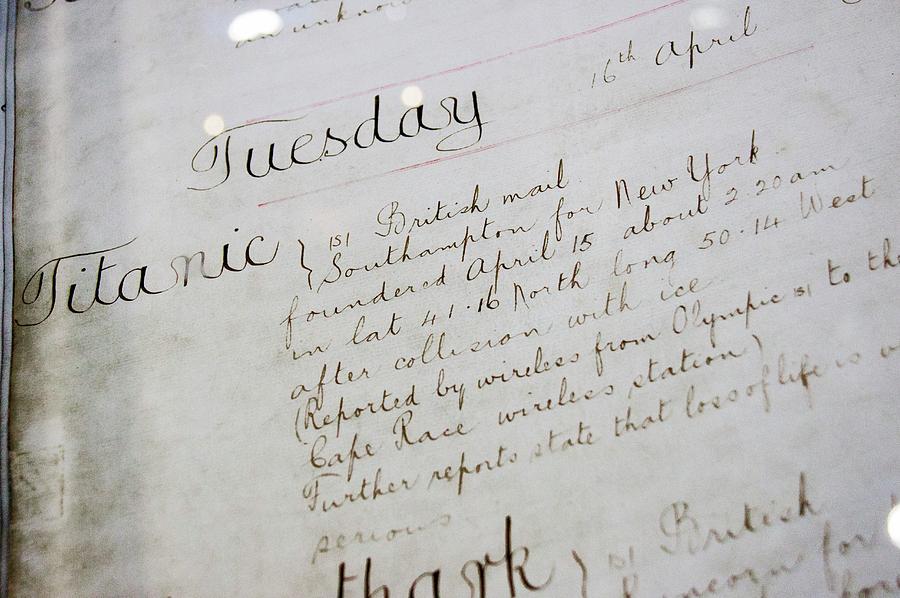 an unknow
Tuesday 16th April
Titanic } (S) British mail
Southampton for New York
foundered April 15 about 2.20 am
in lat 41.16 North long 50.14 West
after collision with ice
(Reported by wireless from Olympic (S) to the
Cape Race wireless station)
Further reports state that loss of life is
serious
thark } (S) British
for